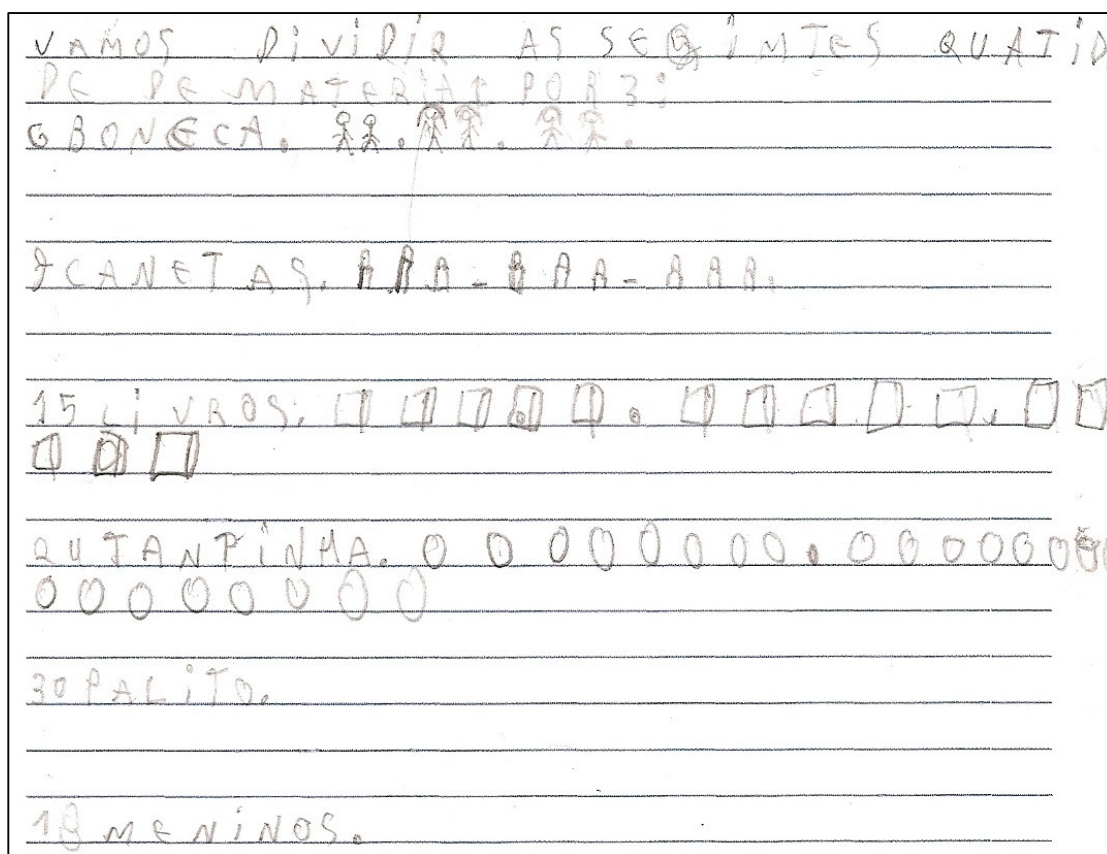 VAMOS DiViDiR AS SEGiMTES QUATiD
DE DE MATERIAL POR 3:
6 BONECA.
9 CANETAS.
15 LiVROS.
24 TANPiNHA.
30 PALiTO.
18 MENiNOS.